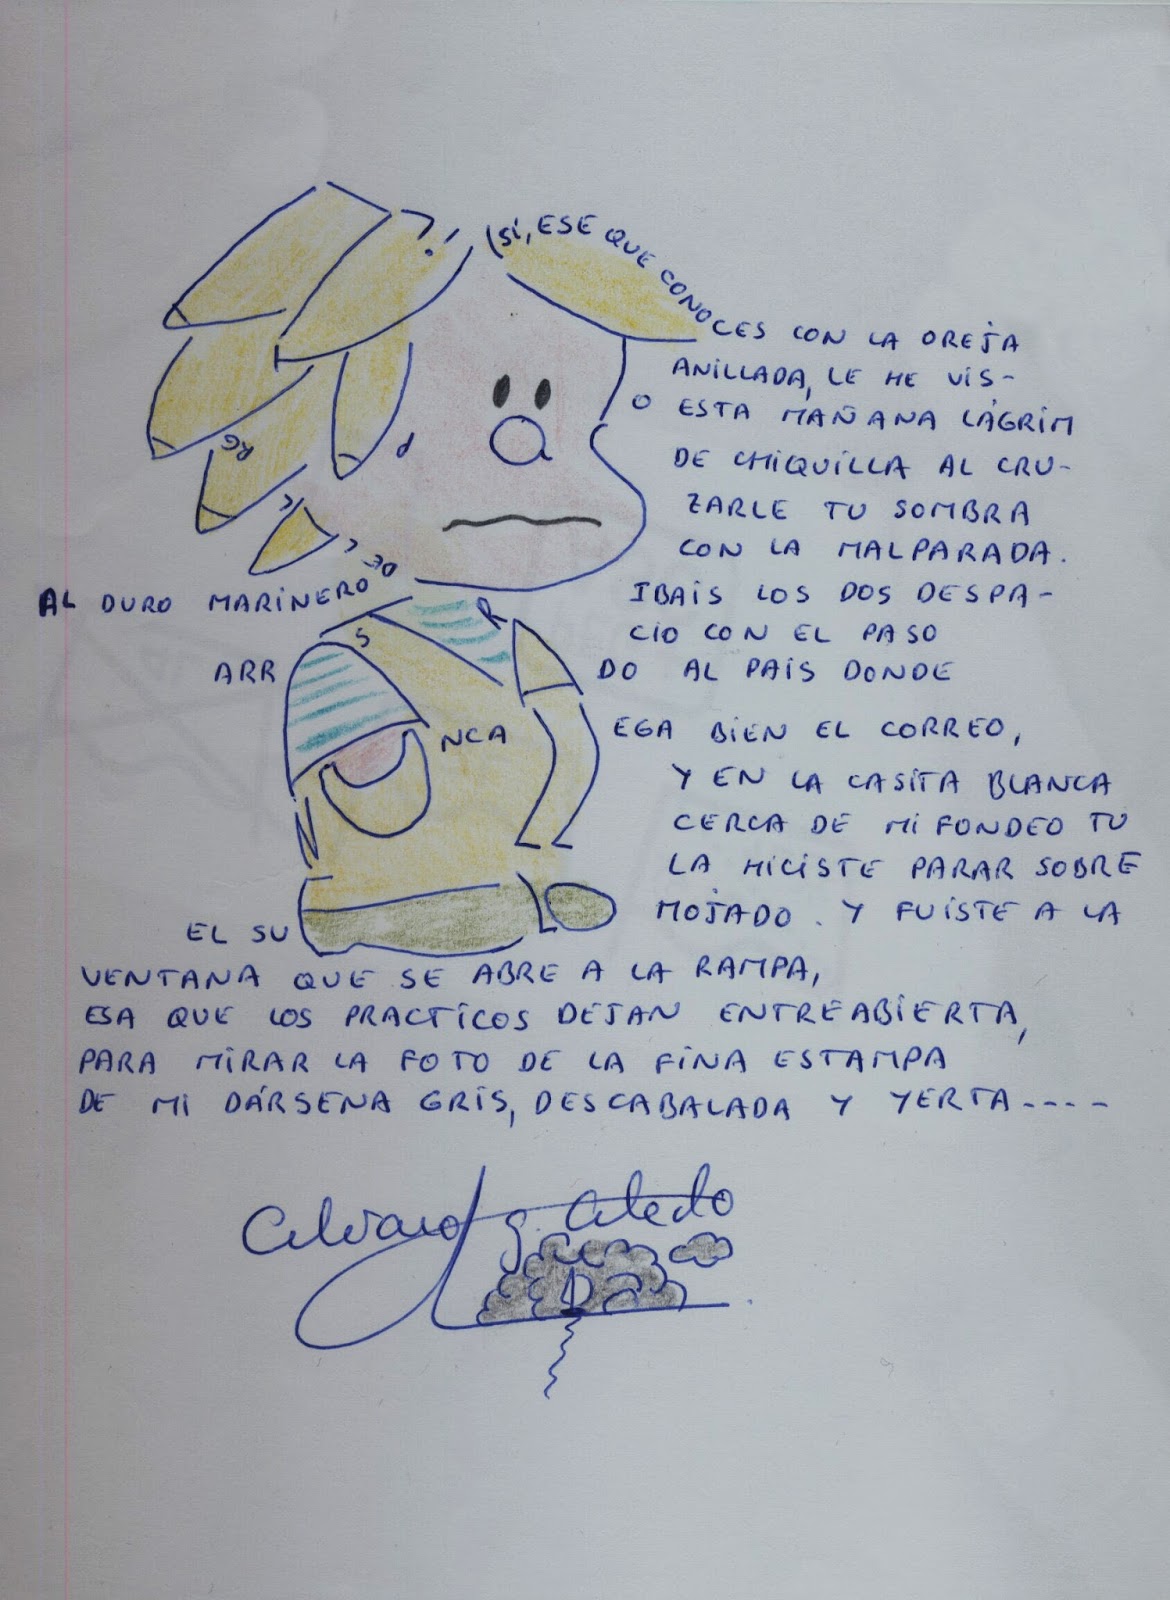 (SÍ, ESE QUE CONOCES CON LA OREJA
ANILLADA, LE HE VIS-
O ESTA MAÑANA LÁGRIM
DE CHIQUILLA AL CRU-
ZARLE TU SOMBRA
CON LA MALPARADA.
AL DURO MARINERO DE
IBAIS LOS DOS DESPA-
CIO CON EL PASO
ARR
DO AL PAÍS DONDE
NCA
EGA BIEN EL CORREO,
Y EN LA CASITA BLANCA
CERCA DE MI FONDEO TU
LA HICISTE PARAR SOBRE
EL SU
MOJADO. Y FUISTE A LA
VENTANA QUE SE ABRE A LA RAMPA,
ESA QUE LOS PRACTICOS DEJAN ENTREABIERTA,
PARA MIRAR LA FOTO DE LA FINA ESTAMPA
DE MI DÁRSENA GRIS, DESCABALADA Y YERTA----
Alvaro G. Aledo